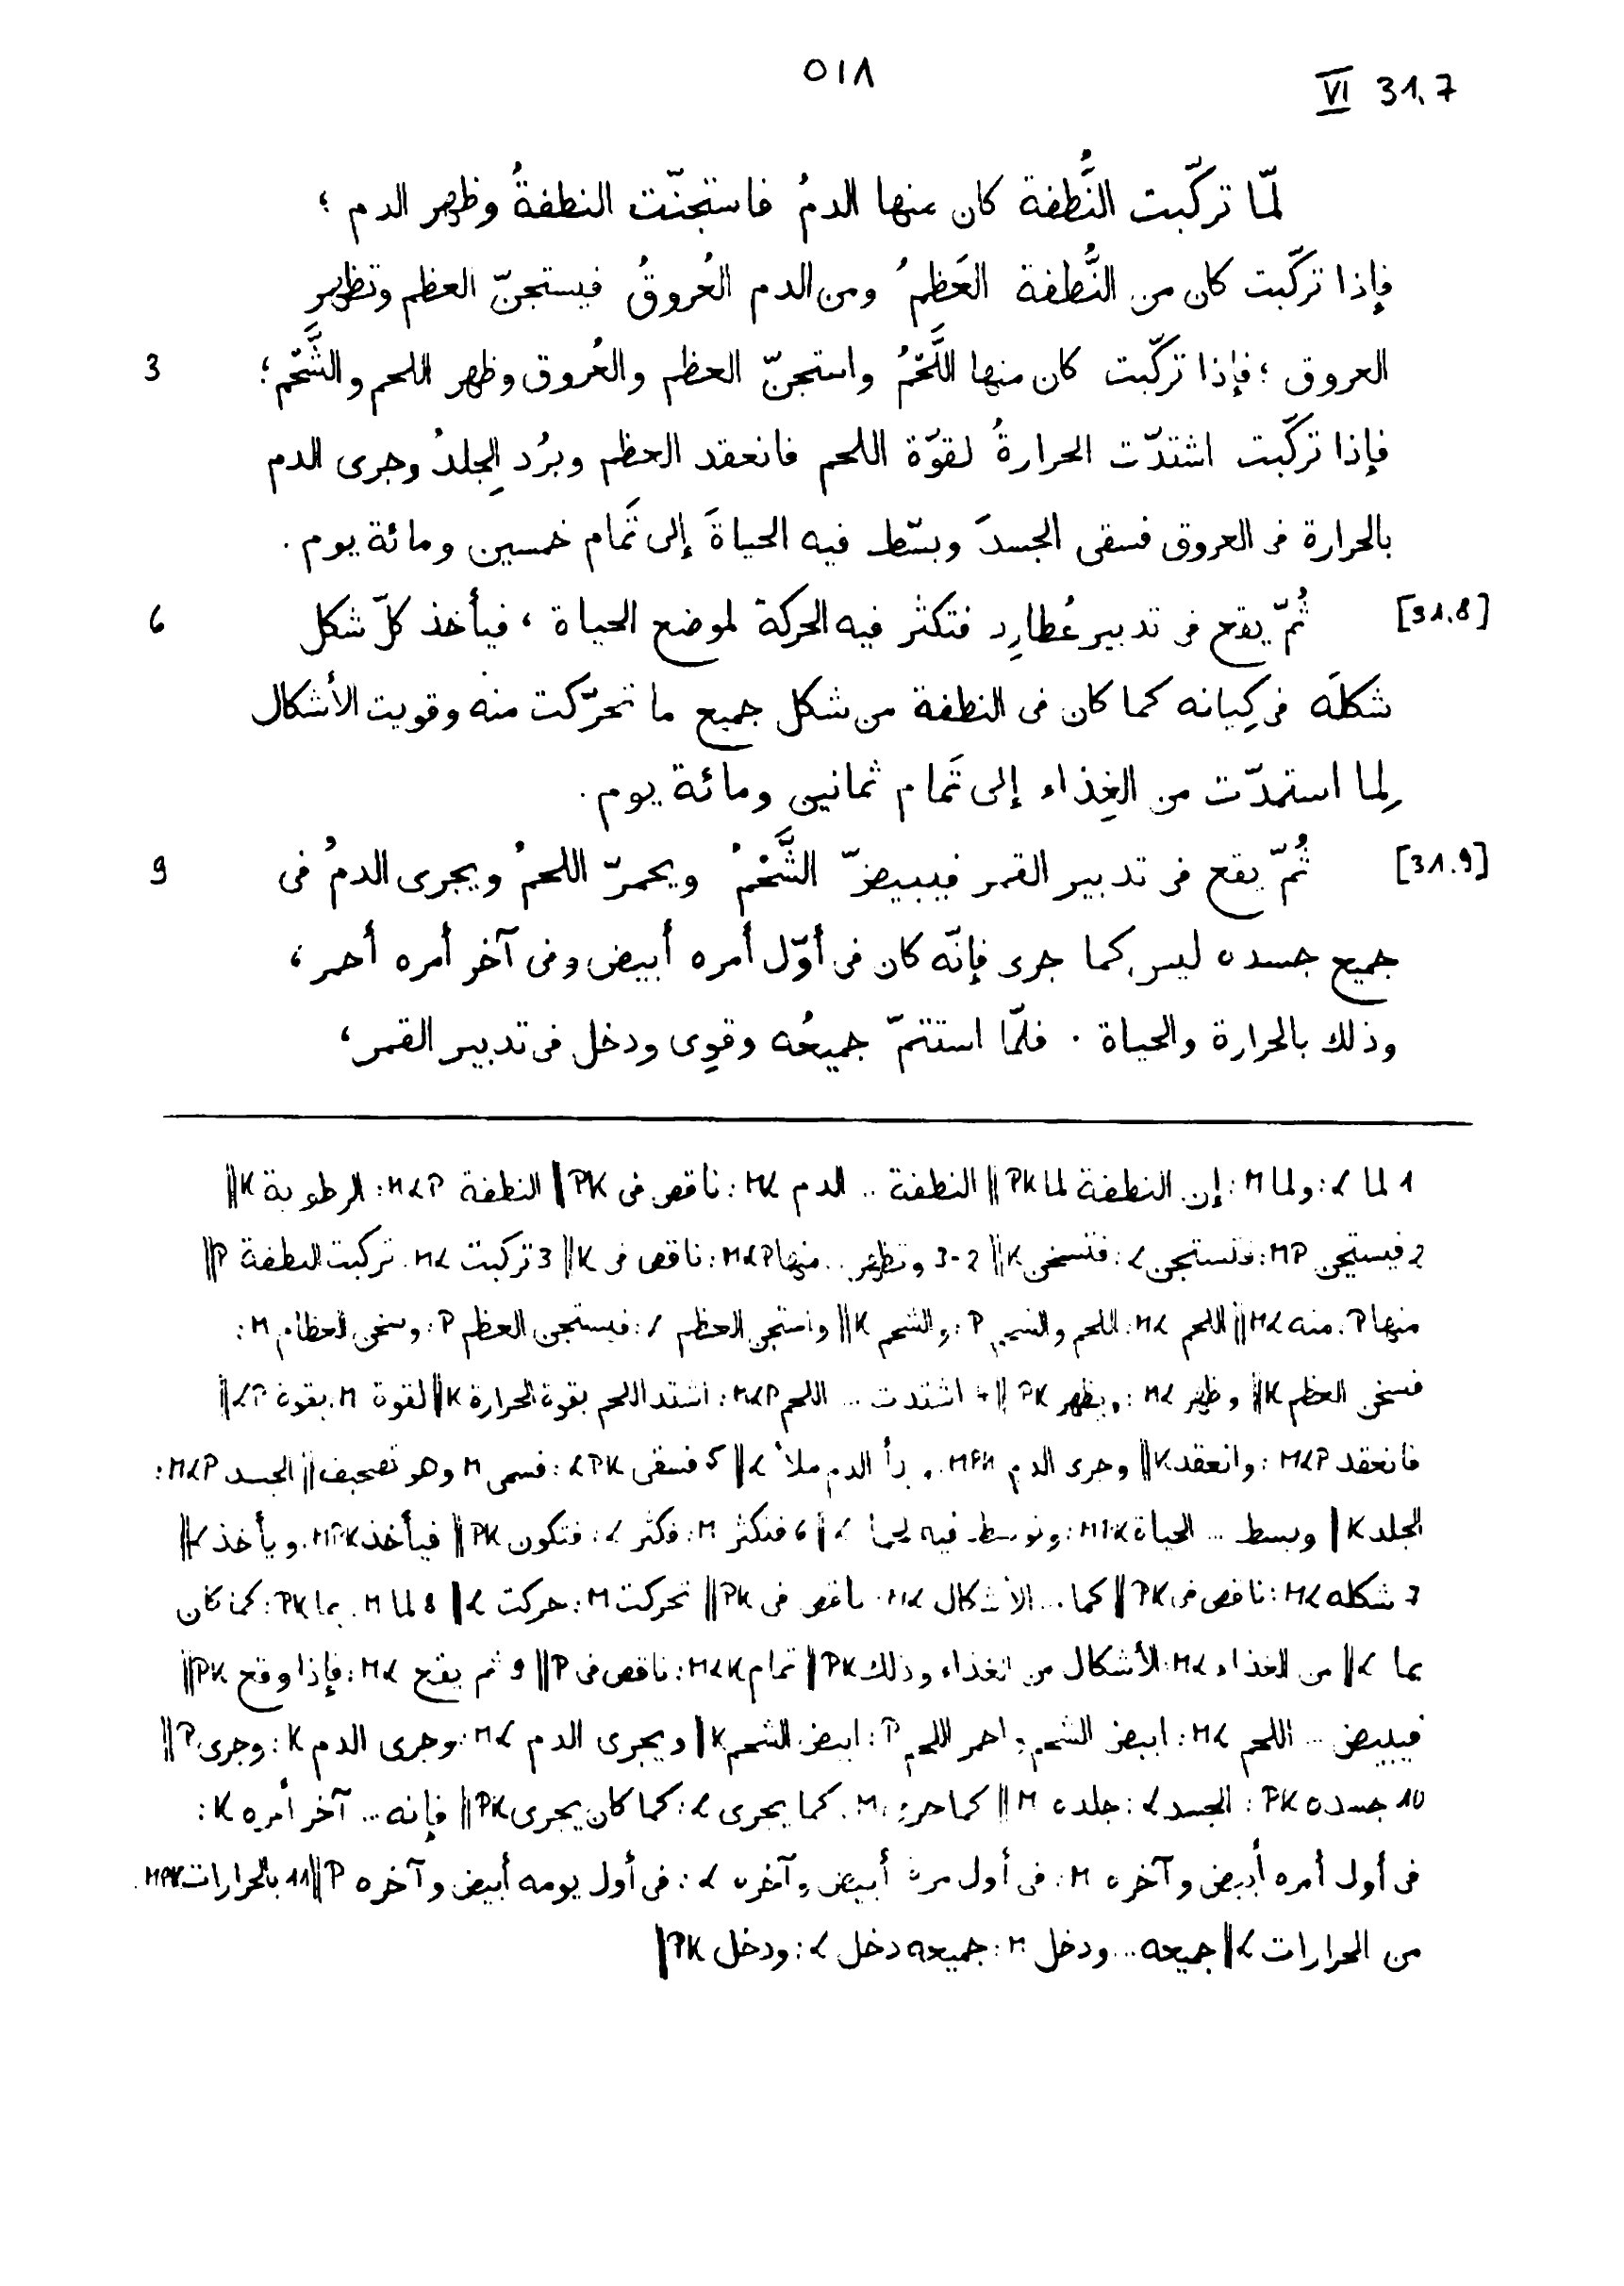 ٥١٨
VI 31.7
لمّا تركّبت النُّطفة كان منها الدمُ فاستجنّت النطفةُ وظهر الدم ؛
فإذا تركّبت كان من النُّطفة العَظمُ ومن الدم العُروقُ فيستجنّ العظم وتظهر
3 العروق ؛ فإذا تركّبت كان منها اللَّحْمُ واستجنّ العظم والعُروق وظهر اللحم والشَّحْم ؛
فإذا تركّبت اشتدّت الحرارةُ لقوّة اللحم فانعقد العظم وبرُد الجِلدُ وجرى الدم
بالحرارة فى العروق فسقى الجسدَ وبسّط فيه الحياةَ إلى تَمام خمسين ومائة يوم .
6 [31.8] ثُمّ يقع فى تدبير عُطارِد فتكثر فيه الحركة لموضع الحياة ، فيأخذ كلّ شكل
شكلَه فى كِيانه كما كان فى النطفة من شكل جميع ما تحرّكت منه وقويت الأشكال
لِما استمدّت من الغِذاء إلى تَمام ثمانين ومائة يوم .
9 [31.9] ثُمّ يقع فى تدبير القمر فيبيضّ الشَّحْمُ ويحمرّ اللحمُ ويجرى الدمُ فى
جميع جسده ليس كما جرى فإنّه كان فى أوّل أمره أبيض وفى آخر أمره أحمر ،
وذلك بالحرارة والحياة . فلمّا استتمّ جميعُه وقوِى ودخل فى تدبير القمر ،
1 لما L : ولما M : إن النطفة لما PK || النطفة .. الدم ML : ناقص فى PK || النطفة MLP : الرطوبة K ||
2 فيستجن MP : فتستجن L : فتسخن K || 2-3 وتظهر .. منها MLP : ناقص فى K || 3 تركبت ML : تركبت النطفة P ||
منها P : منه ML || اللحم ML : اللحم والشحم P : والشحم K || واستجن العظم L : فيستجن العظم P : وسخن العظام M :
فسخن العظم K || وظهر ML : ويظهر PK || 4 اشتدت ... اللحم MLP : اشتد اللحم بقوة الحرارة K || لقوة M : بقوة LP ||
فانعقد MLP : وانعقد K || وجرى الدم MPK : الدم L || 5 فسقى LPK : فسمى M وهو تصحيف || الجسد MLP :
الجلد K || وبسط ... الحياة MPK : فيه L || 6 فتكثر M : فكثر L : فتكون PK || فيأخذ MPK : ويأخذ L ||
7 شكله ML : ناقص فى PK || كما ... الأشكال ML : ناقص فى PK || تحركت M : حركت L || 8 لما M : بما PK : كما كان
بما L || من الغذاء ML : الأشكال من الغذاء وذلك PK || تمام MLK : ناقص فى P || 9 ثم يقع ML : فإذا وقع PK ||
فيبيض ... اللحم ML : ابيض الشحم واحمر اللحم P : ابيض الشحم K || ويجرى الدم ML : وجرى الدم K : وجرى P ||
10 جسده PK : الجسد L : جلده M || كما جرى M : كما يجرى L : كما كان يجرى PK || فإنه ... آخر أمره K :
فى أول أمره أبيض وآخره M : فى أول مرة أبيض وآخره L : فى أول يومه أبيض وآخره P || 11 بالحرارات MPK :
من الحرارات L || جميعه ... ودخل M : جميعه دخل L : ودخل PK ||